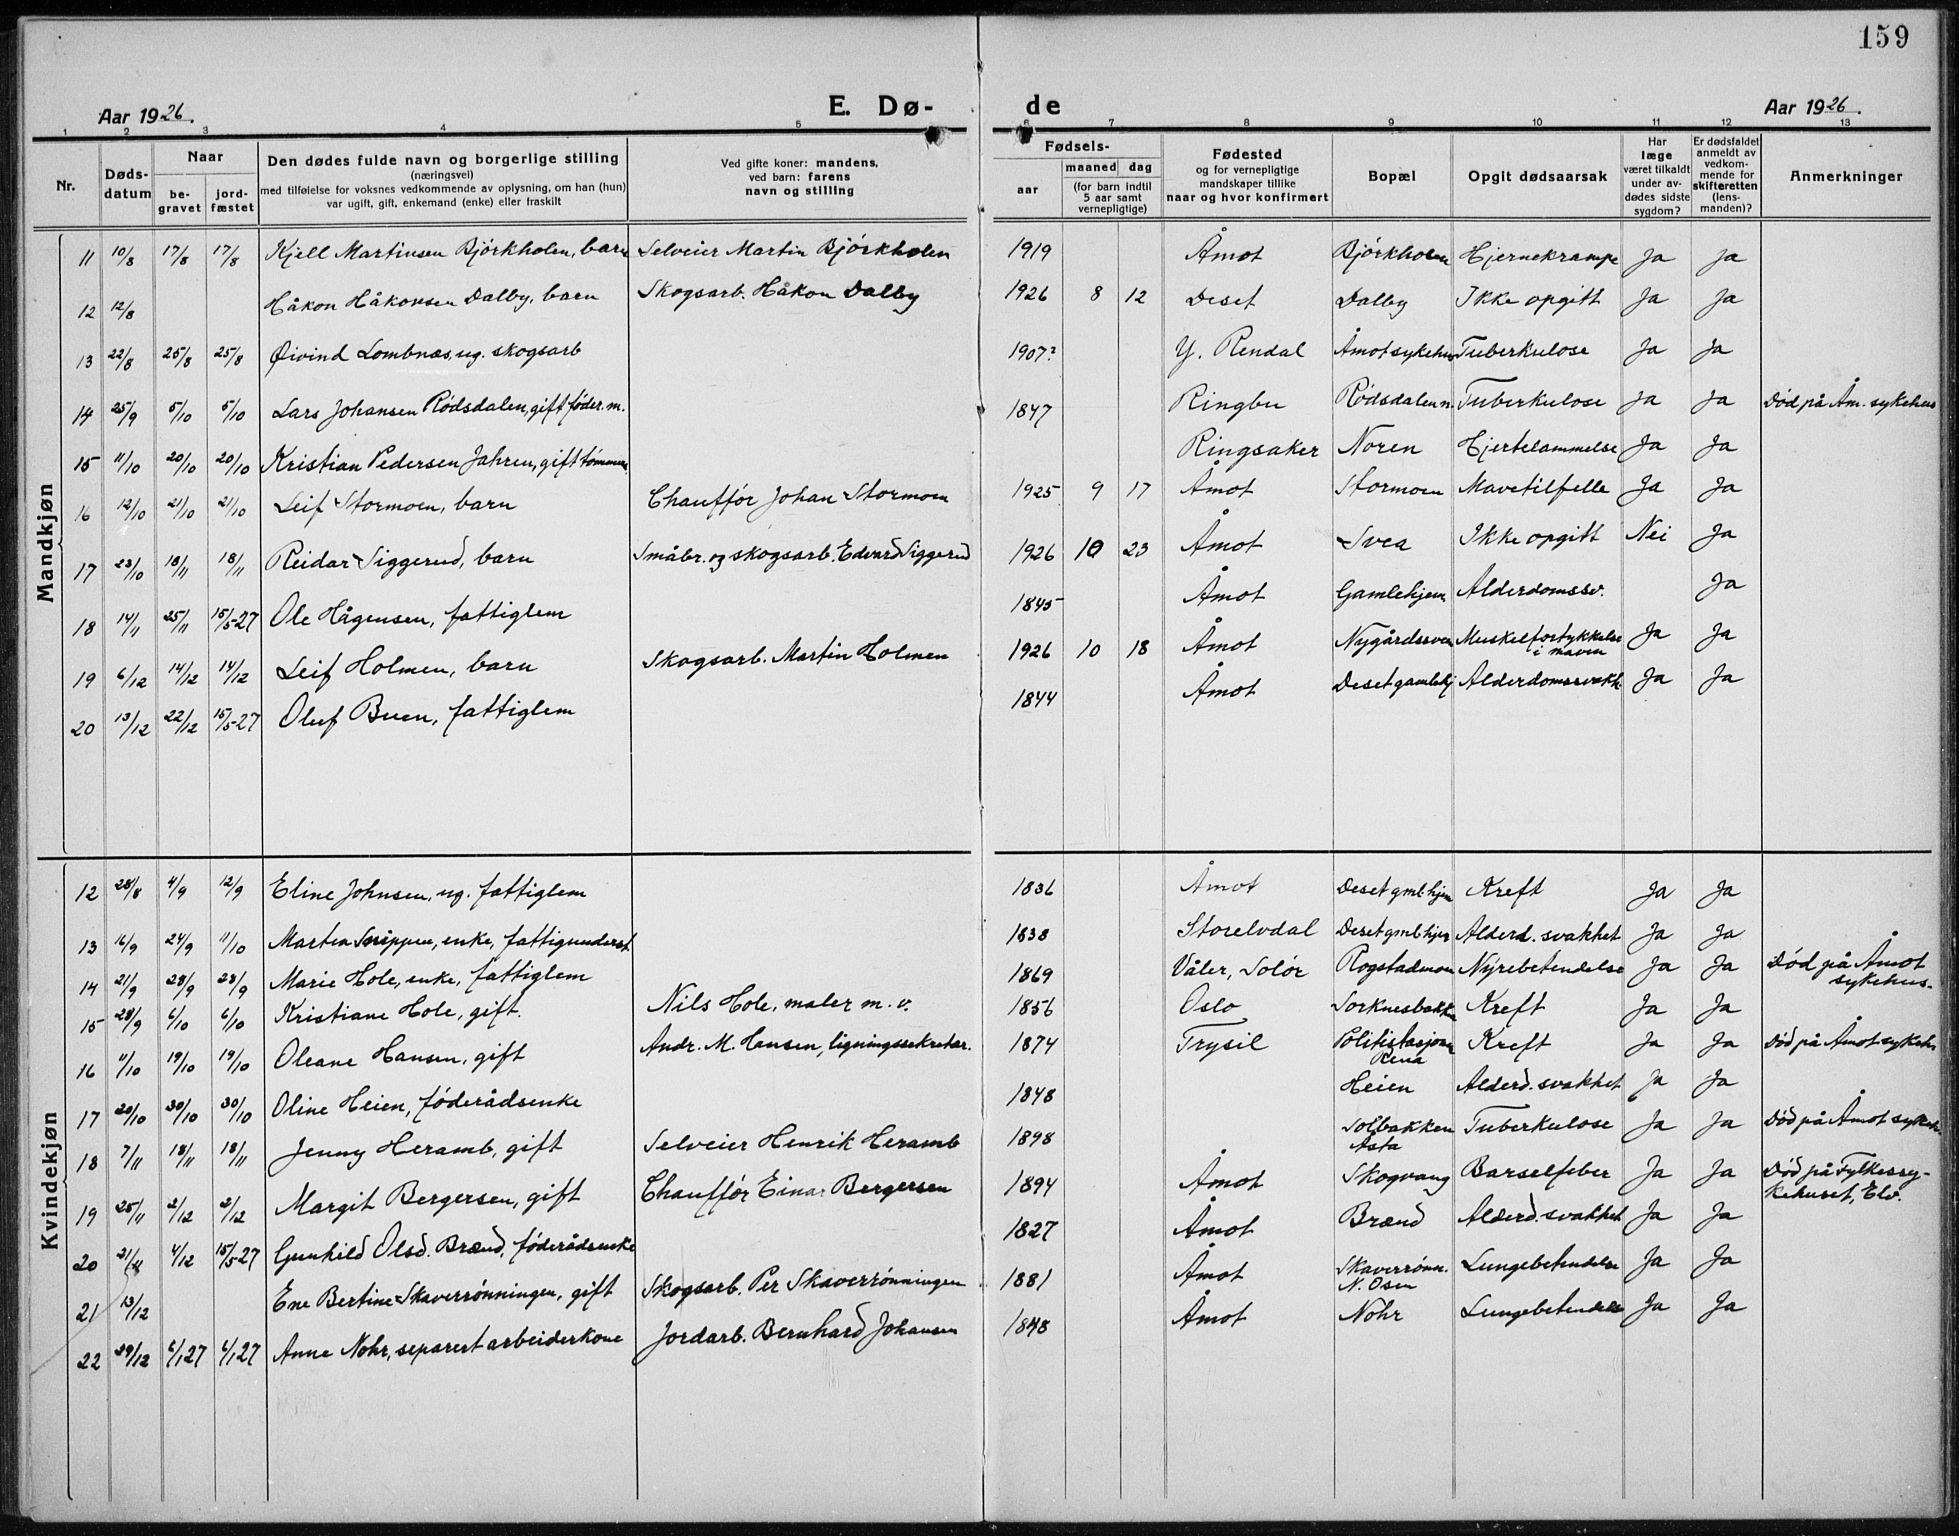 159
Aar 1926. E. Dø- de Aar 1926.
1 2 3 4 5 6 7 8 9 10 11 12 13
Nr.
Døds-
datum
Naar
be-
gravet
jord-
fæstet
Den dødes fulde navn og borgerlige stilling
(næringsvei)
med tilføielse for voksnes vedkommende av oplysning, om han (hun)
var ugift, gift, enkemand (enke) eller fraskilt
Ved gifte koner: mandens,
ved barn: farens
navn og stilling
Fødsels-
aar
maaned dag
(for barn indtil
5 aar samt
vernepligtige)
Fødested
og for vernepligtige
mandskaper tillike
naar og hvor konfirmert
Bopæl
Opgit dødsaarsak
Har
læge
været tilkaldt
under av-
dødes sidste
sygdom?
Er dødsfaldet
anmeldt av
vedkom-
mende for
skifteretten
(lens-
manden)?
Anmerkninger
Mandkjøn
11 10/8 17/8 17/8 Kjell Martinsen Björkholen, barn Selveier Martin Björkholen 1919 Åmot Björkholen Hjernekrampe Ja Ja
12 12/8 Håkon Håkonsen Dalby, barn Skogsarb. Håkon Dalby 1926 8 12 Deset Dalby Ikke opgitt Ja Ja
13 22/8 25/8 25/8 Øivind Lombnæs, ug. skogsarb 1907? Y. Rendal Åmot sykehus Tuberkulose Ja Ja
14 25/9 5/10 5/10 Lars Johansen Rödsdalen, gift føder.m. 1847 Ringbu Rödsdalen n. Tuberkulose Ja Ja Död på Åm. sykehus
15 11/10 20/10 20/10 Kristian Pedersen Jahren, gift tömmerm. Ringsaker Noren Hjertelammelse Ja Ja
16 12/10 21/10 21/10 Leif Stormoen, barn Chauffør Johan Stormoen 1925 9 17 Åmot Stormoen Mavetilfelle Ja Ja
17 23/10 18/11 18/11 Reidar Siggerud, barn Småbr. og skogsarb. Edvard Siggerud 1926 10 23 Åmot Svea Ikke opgitt Nei Ja
18 14/11 25/11 15/5-27 Ole Hågensen, fattiglem 1845 Åmot Gamlehjem Alderdomssv. Ja
19 6/12 14/12 14/12 Leif Holmen, barn Skogsarb. Martin Holmen 1926 10 18 Åmot Nygårdssven Muskelfortykkelse
i maven Ja Ja
20 13/12 22/12 15/5-27 Oluf Buen, fattiglem 1844 Åmot Deset gamlehj Alderdomssvakh. Ja Ja
Kvindekjøn
12 28/8 4/9 12/9 Eline Johnsen, ug. fattiglem 1836 Åmot Deset gmlhjem Kreft Ja Ja
13 16/9 24/9 11/10 Martea Snippen, enke, fattigunderst. 1838 Storelvdal Deset gmlhjem Alderd. svakhet Ja Ja
14 21/9 28/9 28/9 Marie Hole, enke, fattiglem 1869 Våler, Solör Rogstadmoen Nyrebetendelse Ja Ja Död på Åmot
sykehus.
15 28/9 6/10 6/10 Kristiane Hole, gift. Nils Hole, maler m. v. 1856 Oslo Sorknesbakken Kreft Ja Ja
16 11/10 19/10 19/10 Oleane Hansen, gift Andr. M. Hansen, ligningssekretær. 1874 Trysil Politistasjonen
Rena Kreft Ja Ja Död på Åmot sykeh.
17 20/10 30/10 30/10 Oline Heien, føderådsenke 1848 Heien Alderd. svakhet Ja Ja
18 7/11 18/11 18/11 Jenny Heramb, gift Selveier Henrik Heramb 1898 Solbakken
Åsta Tuberkulose Ja Ja Död på Åmot sykeh.
19 25/11 2/12 2/12 Margit Bergersen, gift Chauffør Einar Bergersen 1894 Åmot Skogvang Barselfeber Ja Ja Död på Fylkessy-
kehuset, Elv.
20 21/11 4/12 15/5-27 Gunhild Olsd. Brænd, føderådsenke 1827 Åmot Brænd Alderd. svakhet Ja Ja
21 13/12 Ene Bertine Skaverrønningen, gift Skogsarb. Per Skaverrønningen 1881 Åmot Skaverrønn.
N. Osen Lungebetendelse Ja Ja
22 29/12 6/1 27 6/1 27 Anne Nohr, separert arbeiderkone Jordarb. Bernhard Johansen 1848 Åmot Nohr Lungebetendelse Ja Ja